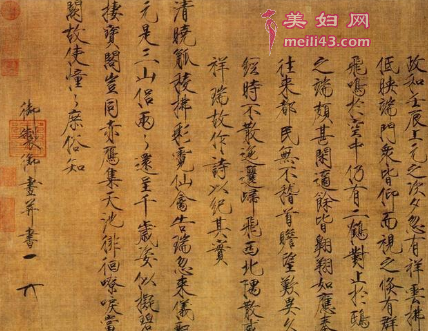 美妇网
meili43.com
政和壬辰上元之次夕忽有祥雲拂
低映端門衆皆仰而視之倏有群
飛鳴於空中仍有二鶴對止於鴟
之端頗甚閒適餘皆翱翔如應奏
往來都民無不稽首瞻望歎異久
經時不散迤邐歸飛西北隅散
祥瑞故作詩以紀其實
清曉觚稜拂彩霓仙禽告瑞忽來儀
元是三山侶兩兩還呈千歲姿似擬碧
棲寶閣豈同赤鴈集天池徘徊嘹唳當
闕故使憧憧庶俗知
御製御畫并書